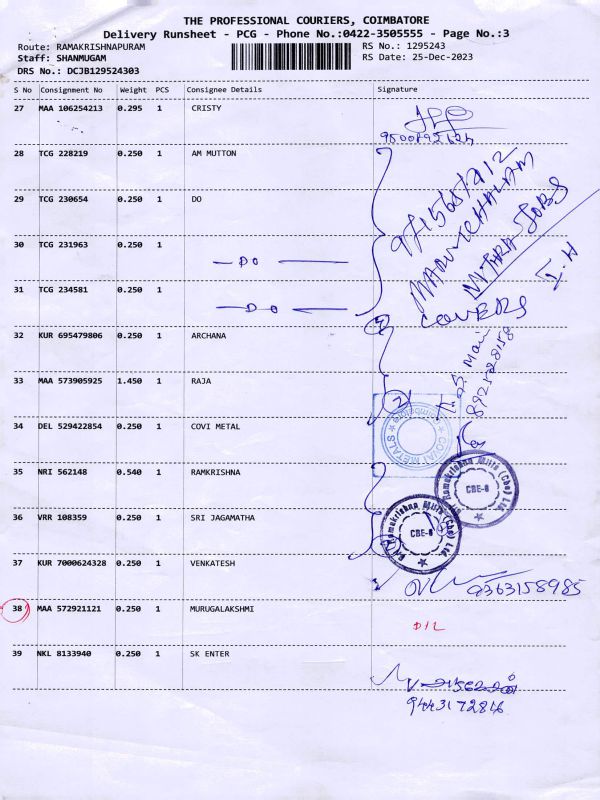 THE PROFESSIONAL COURIERS, COIMBATORE
Delivery Runsheet - PCG - Phone No.:0422-3505555 - Page No.:3
Route: RAMAKRISHNAPURAM
RS No.: 1295243
Staff: SHANMUGAM
RS Date: 25-Dec-2023
DRS No.: DCJB129524303
S No Consignment No Weight PCS Consignee Details Signature
27 MAA 106254213 0.295 1 CRISTY
28 TCG 228219 0.250 1 AM MUTTON
29 TCG 230654 0.250 1 DO
30 TCG 231963 0.250 1
— DO —
31 TCG 234581 0.250 1
— DO —
COVERS
32 KUR 695479806 0.250 1 ARCHANA
33 MAA 573905925 1.450 1 RAJA
2
34 DEL 529422854 0.250 1 COVI METAL
COVAI METALS
35 NRI 562148 0.540 1 RAMKRISHNA
Sri Ramakrishna Mills (Cbe) Ltd.
CBE-6
36 VRR 108359 0.250 1 SRI JAGAMATHA
Sri Ramakrishna Mills (Cbe) Ltd.
CBE-6
37 KUR 7000624328 0.250 1 VENKATESH
9363158985
38 MAA 572921121 0.250 1 MURUGALAKSHMI
D/L
39 NKL 8133940 0.250 1 SK ENTER
9443172846